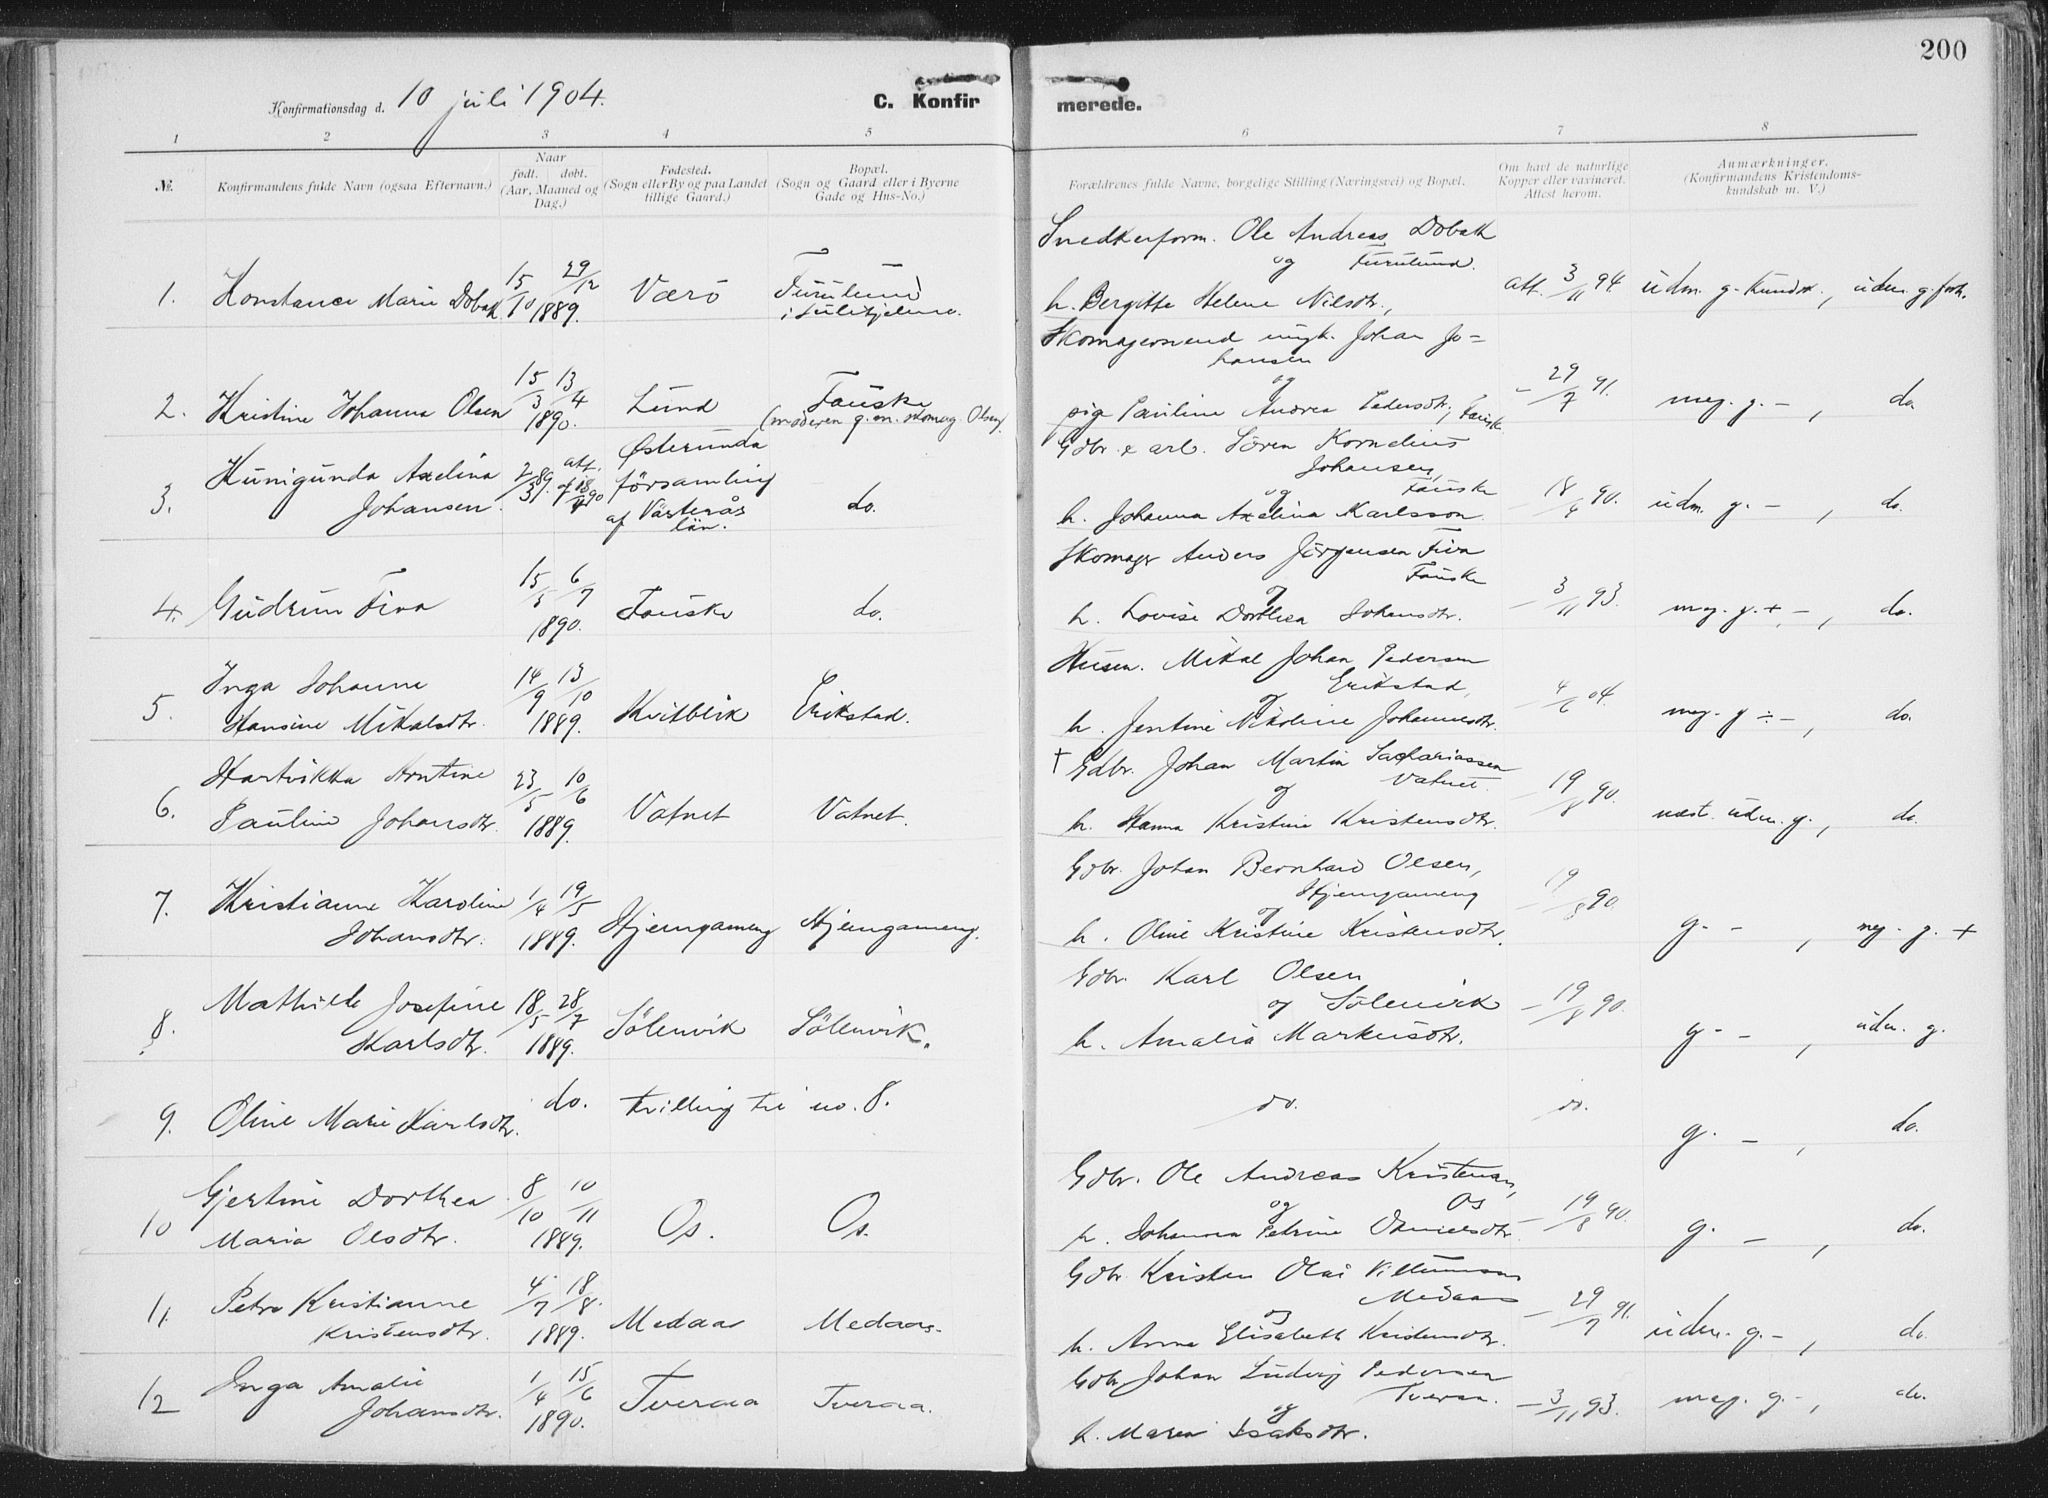 200
Konfirmationsdag d. 10 juli 1904.
C. Konfirmerede.
1 2 3 4 5 6 7 8
№.
Konfirmandens fulde Navn (ogsaa Efternavn.)
Naar
født. døbt.
(Aar, Maaned og
Dag.)
Fødested.
(Sogn eller By og paa Landet
tillige Gaard.)
Bopæl.
(Sogn og Gaard eller i Byerne
Gade og Hus-No.)
Forældrenes fulde Navne, borgelige Stilling (Næringsvei) og Bopæl.
Om havt de naturlige
Kopper eller vaxineret.
Attest herom.
Anmærkninger.
(Konfirmandens Kristendoms-
kundskab m. V.)
1. Konstance Marie Dobak 15/10 29/12 1889. Værö
Furulund
i Sulitjelma.
Snedkerform. Ole Andreas Dobak
og Furulund.
h. Bergitte Helene Nilsdtr.,
att. 3/11 94. udm. g. kundsk., udm. g. forh.
2. Kristine Johanna Olsen 15/3 13/4 1890. Lund
Fauske
(moderen g. m. skomag. Olsen)
Skomagersvend ungk. Johan Jo=
hansen
og
pige Pauline Andrea Pedersdtr., Fausk.
- 29/7 91. meg. g. - , do.
3. Kunigunda Axelina
Johansen.
2/3 89. att. af 18/4 90
Østerunda
församling
af Västerås
län.
do.
Gdbr. & arb. Sören Kornelius
Johansen,
og Fauske
h. Johanna Axelina Karlsson.
- 18/4 90. udm. g. - , do.
4. Gudrun Fira 15/5 6/7 1890. Fauske do.
Skomager Anders Jörgensen Fira
Fauske
og
h. Lovise Dorthea Johansdtr.
- 3/11 93. meg. g. +, - , do.
5. Inga Johanne
Hansine Mikalsdtr.
14/9 13/10 1889. Kvitblik Erikstad.
Husm. Mikal Johan Pedersen
Erikstad,
og
h. Jentine Nikoline Johannesdtr.
- 4/6 04. meg. g ÷ - , do.
6. Hartvikka Arntine
Pauline Johansdtr.
23/5 10/6 1889. Vatnet Vatnet.
† Gdbr. Johan Martin Sachariassen
Vatnet.
og
h. Hanna Kristine Kristensdtr.
- 19/8 90. næst. udm. g. , do.
7. Kristianne Karoline
Johansdtr.
1/4 19/5 1889. Hjemgameng Hjemgameng.
Gdbr. Johan Bernhard Olsen,
Hjemgameng
og
h. Oline Kristine Kristensdtr.
- 19/8 90. g. - , meg. g. +
8. Mathilde Josefine
Karlsdtr.
18/5 28/7 1889. Sölenvik Sölenvik.
Gdbr. Karl Olsen
og Sölenvik
h. Amalia Markusdtr.
- 19/8 90. g. - , udm. g.
9. Oline Marie Karlsdtr. do. tvilling til no. 8.
do. do. g. - , do.
10 Gjertine Dorthea
Maria Olsdtr.
8/10 10/11 1889. Os. Os.
Gdbr. Ole Andreas Kristensen,
og Os
h. Johanna Petrine Danielsdtr.
- 19/8 90. g. - , do.
11. Petra Kristianne
Kristensdtr.
4/7 18/8. 1889. Medaas Medaas.
Gdbr. Kristen Olai Villumsen
Medaas
og
h. Anna Elisabeth Kristensdtr.
- 29/7 91. udm. g. - , do.
12 Inga Amalie
Johansdtr.
1/4 15/6 1890. Tveraa Tveraa.
Gdbr. Johan Ludvig Pedersen
Tveraa.
og
h. Maren Isaksdtr.
- 3/11 93. meg. g. - , do.